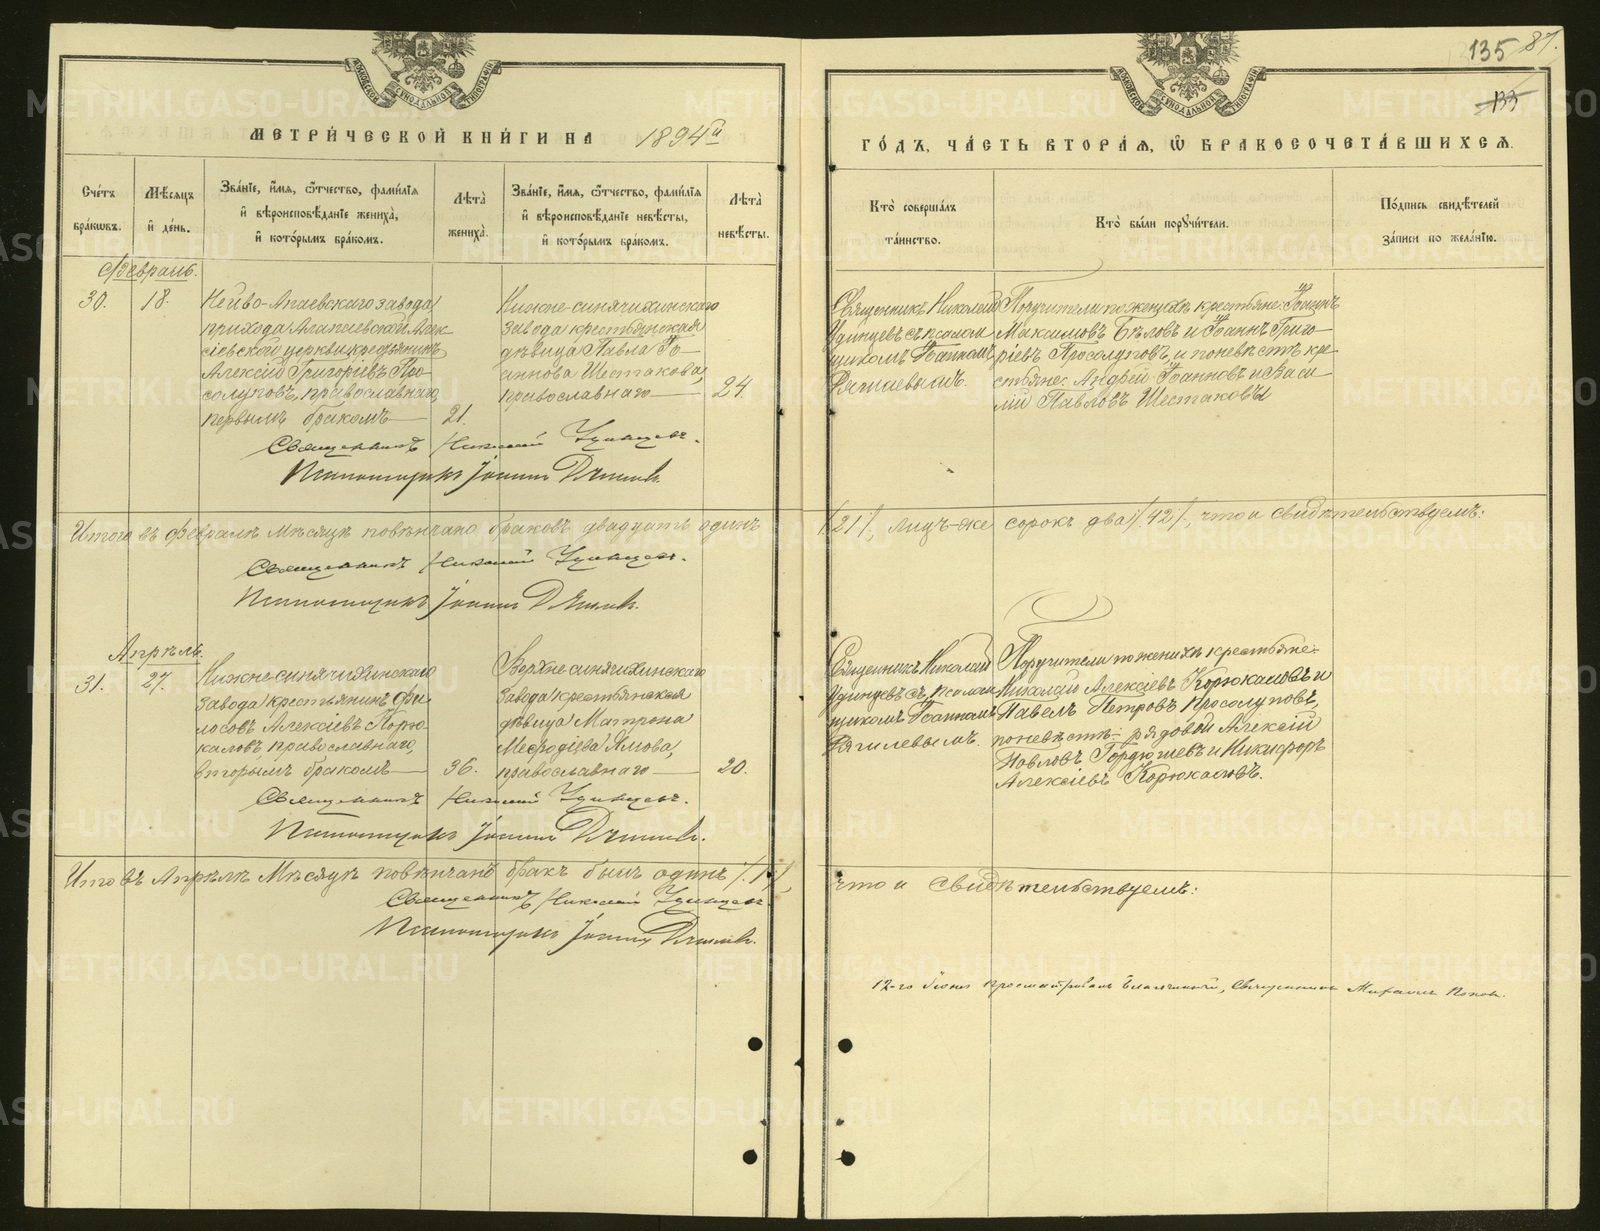 135 87.
133
МЕТРИ́ЧЕСКОЙ КНИ́ГИ НА 1894й
ГО́ДЪ, ЧА́СТЬ ВТОРА́Я, Ѡ БРАКОСОЧЕТА́ВШИХСЯ.
Сче́тъ бра́кѡвъ.
Мѣ́сяцъ и҆ де́нь.
Зва́нїе, и҆́мя, ѻ҆́тчество, фами́лїя
и҆ вѣроисповѣ́данїе жениха̀,
и҆ кото́рымъ бра́комъ.
Лѣта̀ жениха̀.
Зва́нїе, и҆́мя, ѻ҆́тчество, фами́лїя
и҆ вѣроисповѣ́данїе невѣ́сты,
и҆ кото́рымъ бра́комъ.
Лѣта̀ невѣ́сты.
Кто̀ соверша́лъ
та́инство.
Кто̀ бы́ли порꙋчи́тели.
По́дпись свидѣ́телей
за́писи по жела́нїю.
Февраль.
30. 18.
Нейво-Алапаевскаго завода
прихода Алапаевской Алек
сіевской церкви крестьянинъ
Алексій Григоріевъ Про
солуповъ, православнаго,
первымъ бракомъ
21.
Нижне-синячихинскаго
завода крестьянская
дѣвица Павла Іо
аннова Шестакова,
православнаго
24.
Священникъ Николай
Удинцевъ съ псалом
щикомъ Іоанномъ
Поручители по женихѣ крестьяне: Іоаннъ
Максимовъ Бѣловъ и Іоаннъ Григо
ріевъ Просолуповъ, и по невѣстѣ кре
стьяне: Андрей Іоанновъ и Васи
лій Павловъ Шестаковы
Священникъ Николай Удинцевъ.
Псаломщикъ Іоаннъ
Итого въ Февралѣ мѣсяцѣ повѣнчано браковъ двадцать одинъ
/21/, лицъ-же сорокъ два /42/, что и свидѣтельствуемъ:
Священникъ Николай Удинцевъ.
Псаломщикъ Іоаннъ
Апрѣль.
31. 27.
Нижне-синячихинскаго
завода крестьянинъ Фи
лосовъ Алексіевъ Корю
каловъ православнаго,
вторымъ бракомъ
36.
Верхне-синячихинскаго
завода крестьянская
дѣвица Матрона
Меѳодіева Ямова,
православнаго
20.
Священникъ Николай
Удинцевъ съ псалом
щикомъ Іоанномъ
Поручители по женихѣ крестьяне:
Николай Алексіевъ Корюкаловъ и
Павелъ Петровъ Просолуповъ,
по невѣстѣ: рядовой Алексій
Павловъ Гордюшевъ и Никифоръ
Алексіевъ Корюкаловъ.
Священникъ Николай Удинцевъ.
Псаломщикъ Іоаннъ
Итого въ Апрѣлѣ Мѣсяцѣ повѣнчано бракъ былъ одинъ /1/,
что и свидѣтельствуемъ:
Священникъ Николай Удинцевъ
Псаломщикъ Іоаннъ
12-го Іюня просматривалъ Благочинный, Священникъ Михаилъ Поповъ.
METRIKI.GASO-URAL.RU